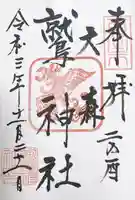 奉拝
二の酉
大森
鷲神社
令和三年十一月二十一日